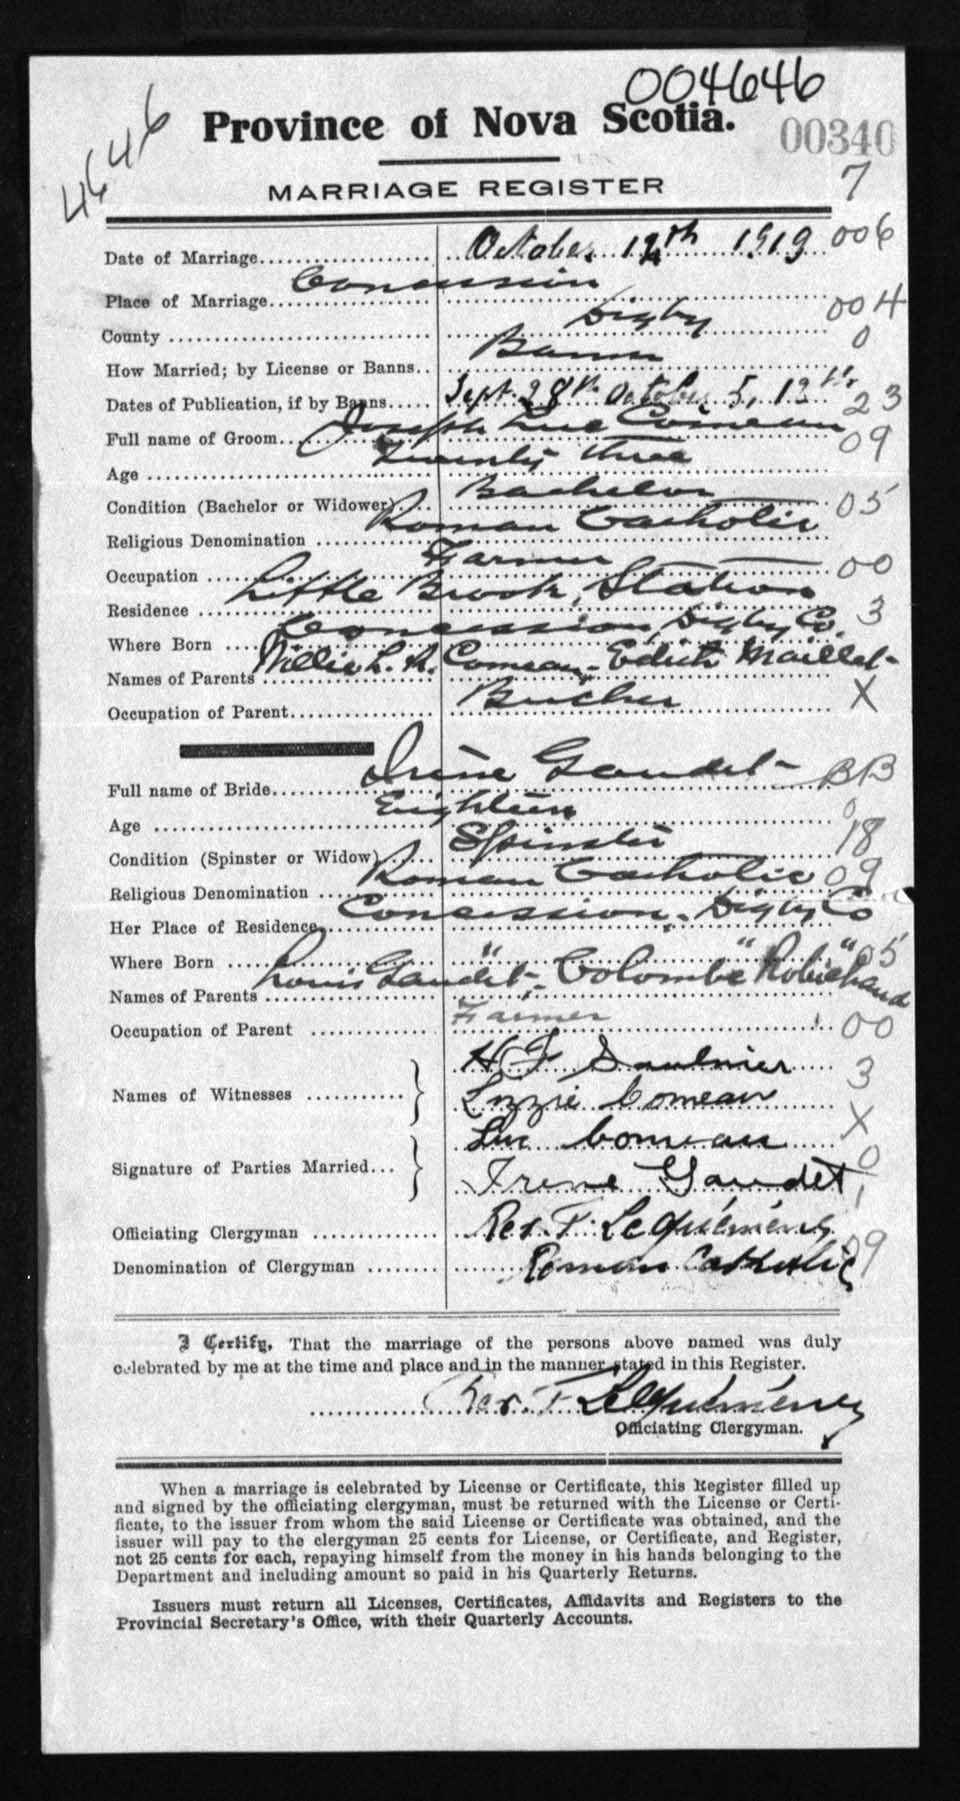 004646
4646
Province of Nova Scotia.
00340
MARRIAGE REGISTER
7
Date of Marriage October 14th 1919 006
Place of Marriage Concession 004
County Digby 0
How Married; by License or Banns.. Banns
Dates of Publication, if by Banns Sept. 28th October 5, 12th 23
Full name of Groom Joseph Luc Comeau 09
Age Twenty three
Condition (Bachelor or Widower) Bachelor 05
Religious Denomination Roman Catholic
Occupation Farmer 00
Residence Little Brook, Station 3
Where Born Concession, Digby Co.
Names of Parents Willie L. A. Comeau - Edith Maillet
Occupation of Parent Bucher X
Full name of Bride Irène Gaudet BB
Age Eighteen 0
Condition (Spinster or Widow) Spinster 18
Religious Denomination Roman Catholic 09
Her Place of Residence Concession, Digby Co
Where Born " " " 05
Names of Parents Louis Gaudet - Colombe Robichaud
Occupation of Parent Farmer 00
Names of Witnesses H F Saulnier 3
Lizzie Comeau X
Signature of Parties Married... Luc Comeau 0
Irene Gaudet 1
Officiating Clergyman Rev. F. LeQuémény
Denomination of Clergyman Roman Catholic 09
I Certify, That the marriage of the persons above named was duly
celebrated by me at the time and place and in the manner stated in this Register.
Rev. F LeQuémény
Officiating Clergyman.
When a marriage is celebrated by License or Certificate, this Register filled up
and signed by the officiating clergyman, must be returned with the License or Certi-
ficate, to the issuer from whom the said License or Certificate was obtained, and the
issuer will pay to the clergyman 25 cents for License, or Certificate, and Register,
not 25 cents for each, repaying himself from the money in his hands belonging to the
Department and including amount so paid in his Quarterly Returns.
Issuers must return all Licenses, Certificates, Affidavits and Registers to the
Provincial Secretary's Office, with their Quarterly Accounts.